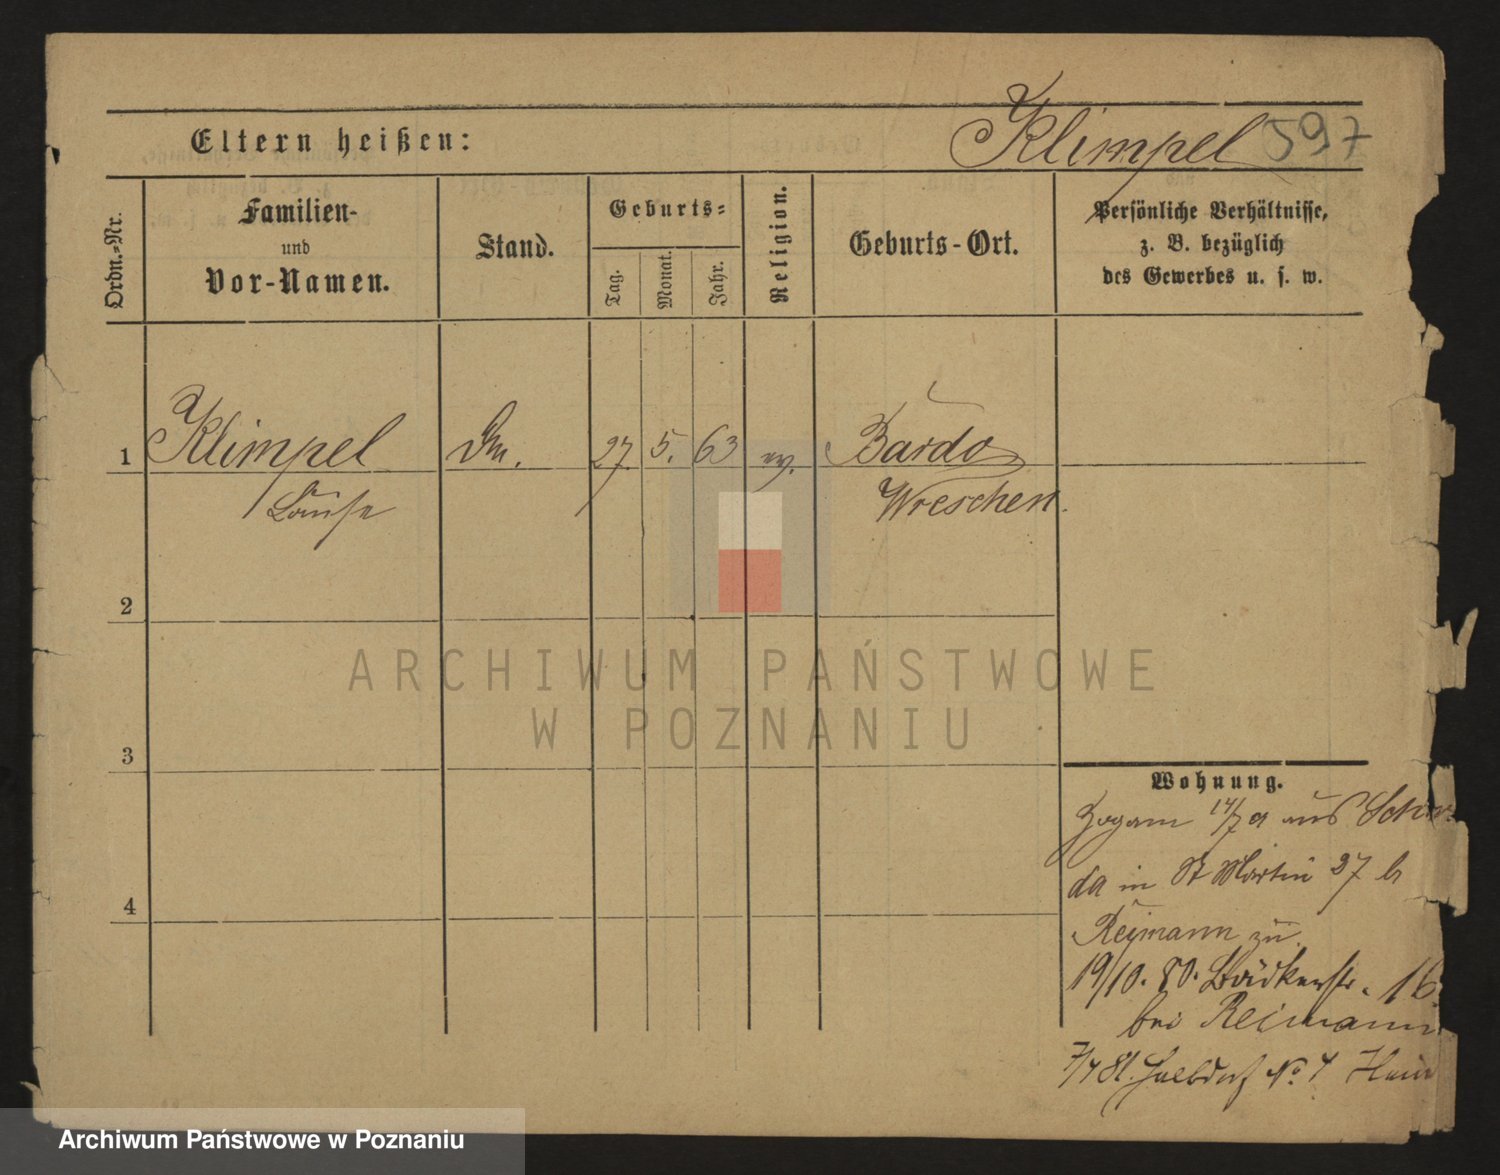 Eltern heißen:
Klimpel 597
Ordn.=Nr.
Familien-
und
Vor-Namen.
Stand.
Geburts=
Tag.
Monat.
Jahr.
Religion.
Geburts-Ort.
Persönliche Verhältnisse,
z. B. bezüglich
des Gewerbes u. s. w.
1 Klimpel 27. 5. 63 ev. Bardo
Louise Wreschen
2
3
4
Wohnung.
14/7 aus
da in St Martin 27 b
Reimann zu
19/10. 80. Bäckerstr. 16
bei Reimann
7/4 81. Halbdorf No. 4
ARCHIWUM PAŃSTWOWE
W POZNANIU
Archiwum Państwowe w Poznaniu